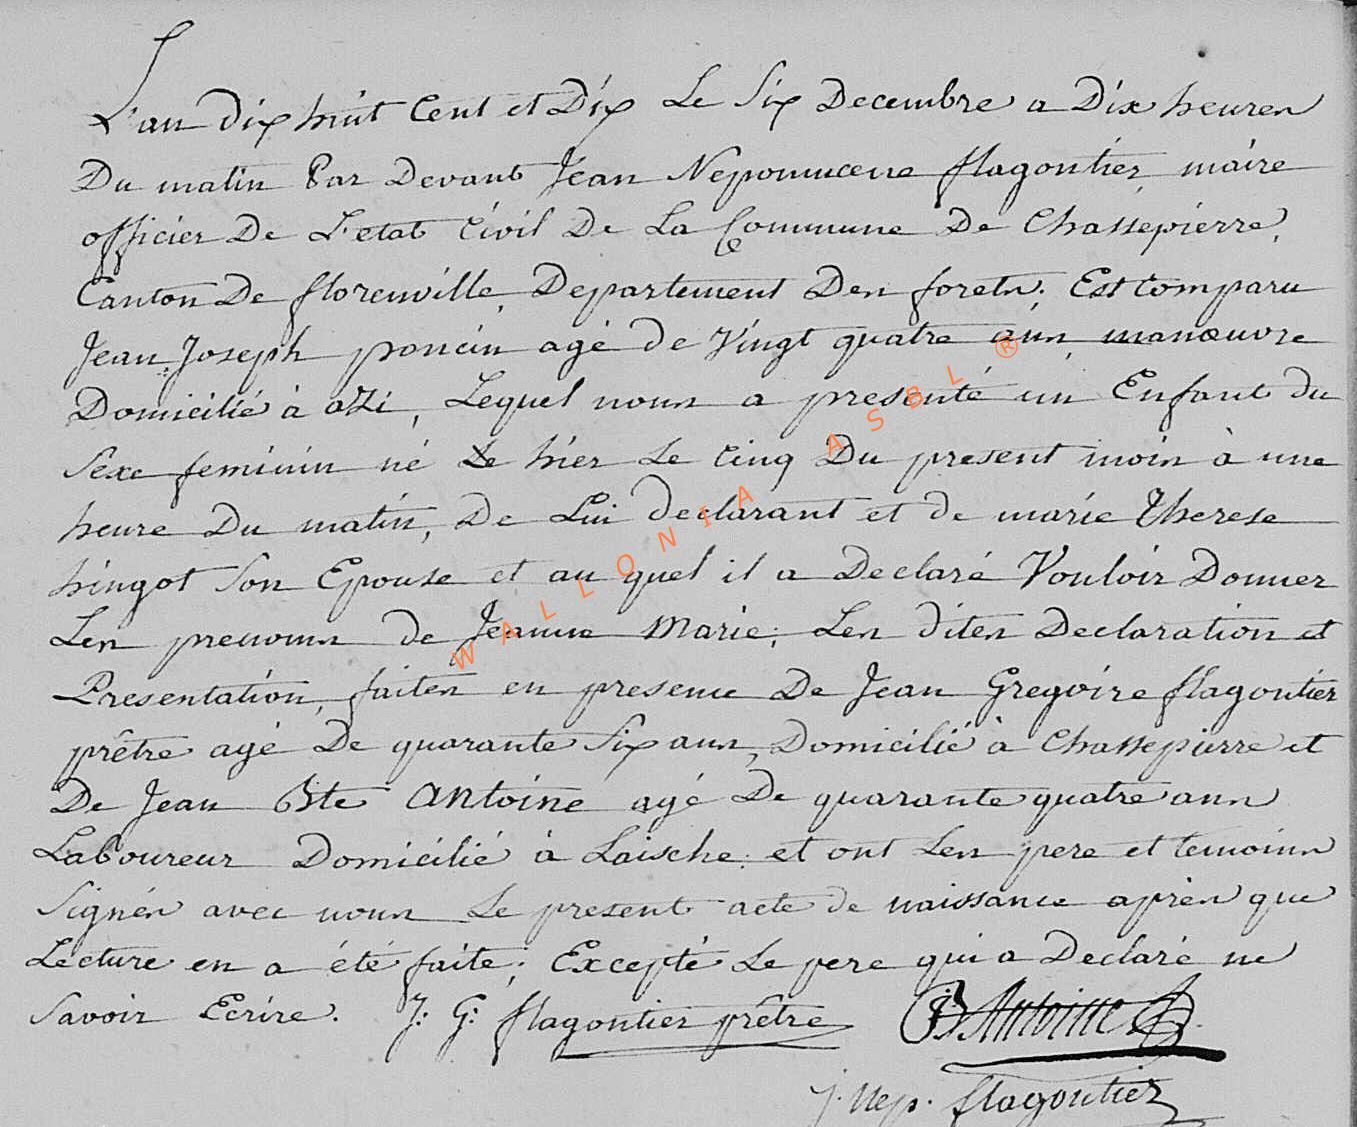 L'an dix huit Cent et Dix Le Six Decembre a Dix heures
Du matin Par Devant Jean Nepomucene flagontier, maire
officier De L'etat Civil De La Commune De Chassepierre,
Canton De florenville, Departement Des forets; Est Comparu
Jean Joseph poncin, agé de Vingt quatre ans, manœuvre
Domicilié à azi, Lequel nous a presenté un Enfant du
Sexe feminin né Le hier Le Cinq Du present mois à une
heure Du matin, De Lui declarant et de marie Therese
hingot Son Epouse et au quel il a Declaré Vouloir Donner
Les prenoms de Jeanne Marie; Les dites Declaration et
Presentation, faites en presence De Jean Gregoire flagontier
prêtre agé De quarante Six ans, Domicilié à Chassepierre et
De Jean Bte Antoine agé De quarante quatre ans
Laboureur Domicilié à Laische; et ont Les pere et temoins
Signés avec nous Le present acte de naissance après que
Lecture en a été faite; Excepté Le pere qui a Declaré ne
Savoir Ecrire. J: G: flagontier prêtre JB Antoine
J. Nep. flagontier
WALLONIA ASBL ®